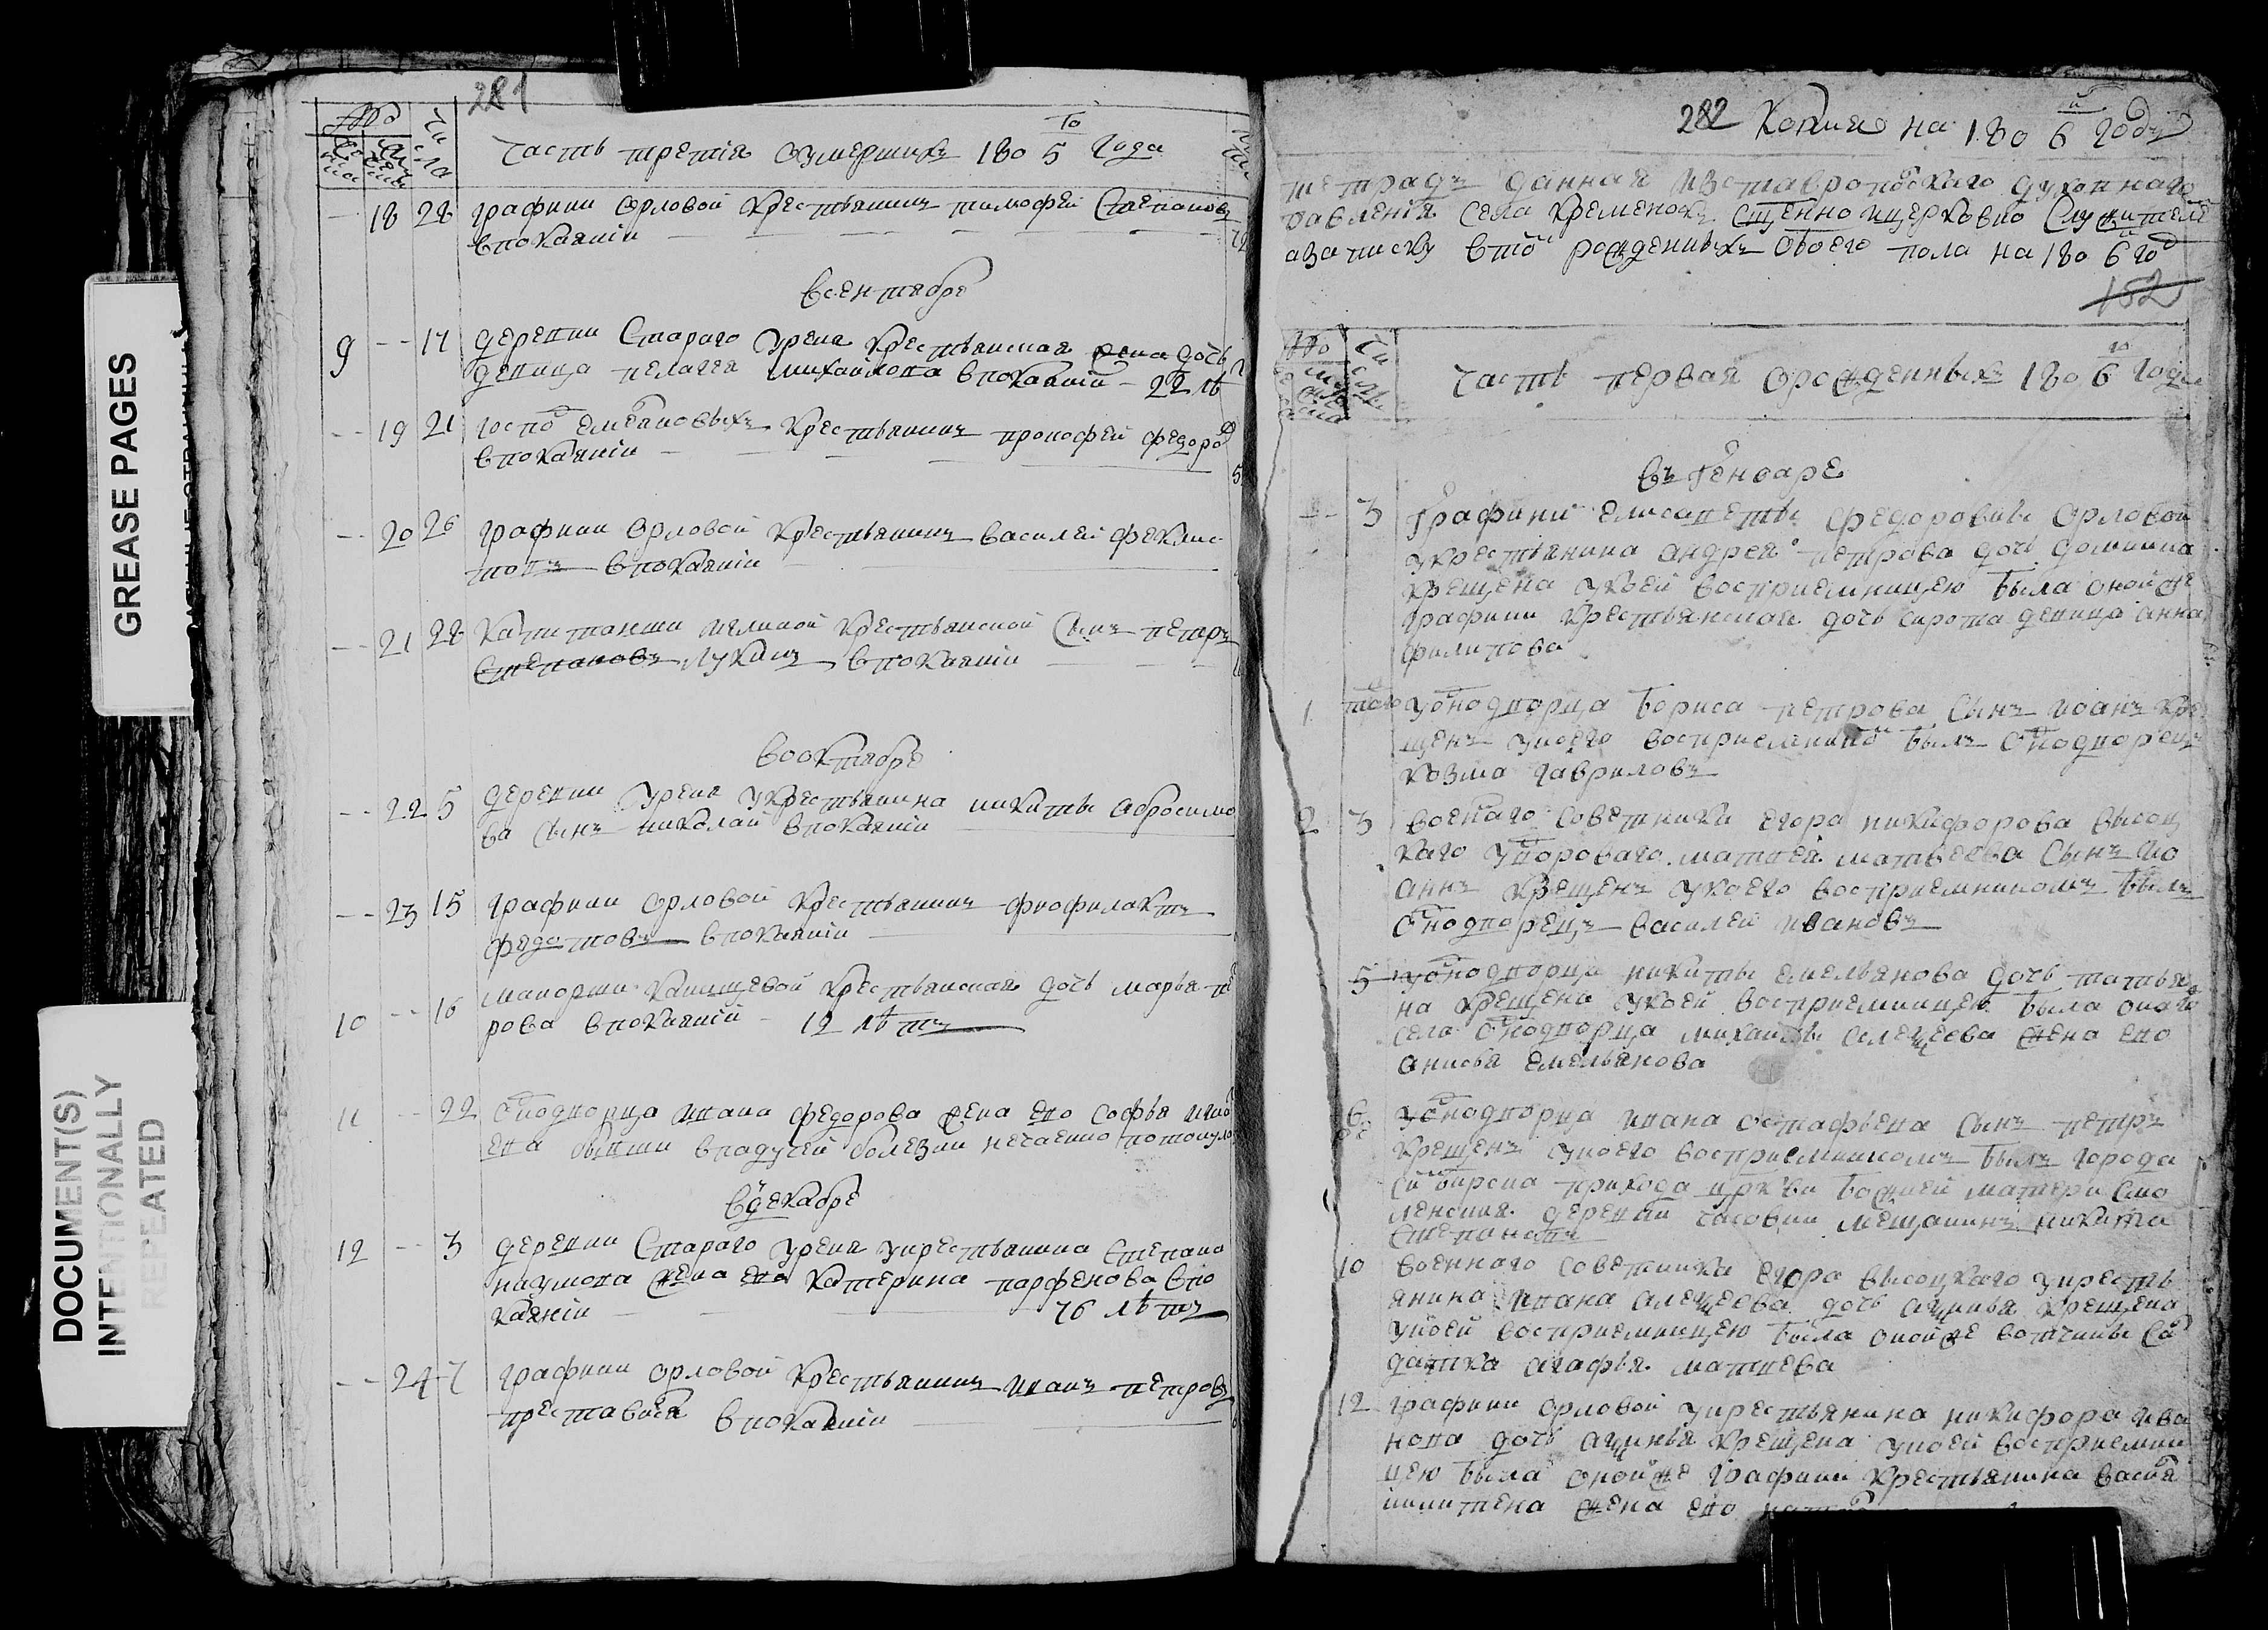 GREASE PAGES
DOCUMENT(S)
INTENTIONALLY
REPEATED
281
часть третія оумершихъ 1805 го года
18 28 графини орловой крестьянинъ тимофей степановъ
в покаяніи
в сентябре
9 -- 17 деревни Стараго Урена крестьянская дочь
девица пелагея михайлова в покаяніи - 22 лѣ
-- 19 21 крестьянинъ прокофей федоро
в покаяніи
-- 20 26 графини орловой крестьянинъ василей
в покаяніи
-- 21 28 крестьянской сынъ петръ
в покаяніи
в октябре
-- 22 5 деревни Урена у крестьянина никиты абросимо
ва сынъ николай в покаяніи
-- 23 15 графини орловой крестьянинъ феофилактъ
федотовъ в покаяніи
10 -- 16 маиорши крестьянская дочь марья пе
рова в покаяніи - 12 лѣтъ
11 -- 22 однодворца ивана федорова жена ево софья
в падучей болезни нечаенно потонула
в декабре
12 -- 3 деревни Стараго Урена у крестьянина степана
наумова жена ево катерина парфенова в по
каяніи 76 лѣтъ
-- 24 7 графини орловой крестьянинъ иванъ петровъ
в покаяніи
282 Копия на 1806 й годъ
тетрадь данная изставропоскаго духовнаго
правления села кременокъ сщенно ицерковно служителе
в той рожденныхъ обоего пола на 1806 й год
152
часть первая орожденныхъ 1806 го года
въ генваре
3 Графини елисаветы федоровны орловой
у крестьянина андрея петрова дочь домника
крещена у коей восприемницею была оной же
графини крестьянская дочь сирота девица анна
филипова
1 того у однодворца бориса петрова сынъ иоанъ кре
щенъ у коего восприемнико былъ однодворецъ
козма гавриловъ
2 3 военаго советника егора никифорова высоц
каго матвея матвеева сынъ ио
аннъ крещенъ у коего восприемникомъ былъ
однодворецъ василей ивановъ
5 у однодворца никиты емельянова дочь татья
на крещена у коей восприемницею была онаго
села однодворца михаилы жена ево
анисья емельянова
6 у однодворца ивана остафьева сынъ петръ
крещенъ у коего восприемникомъ былъ города
синбирска прихода цркви божией матери смо
ленския мещанинъ никита
степановъ
10 военнаго советника егора высоцкаго у кресть
янина ивана алексеева дочь крещена
у коей восприемницею была оной же вотчины со
датка агафья матвева
12 графини орловой у крестьянина никифора ива
нова дочь крещена у коей восприемни
цею была оной же графини крестьянина васи
никитена жена ево